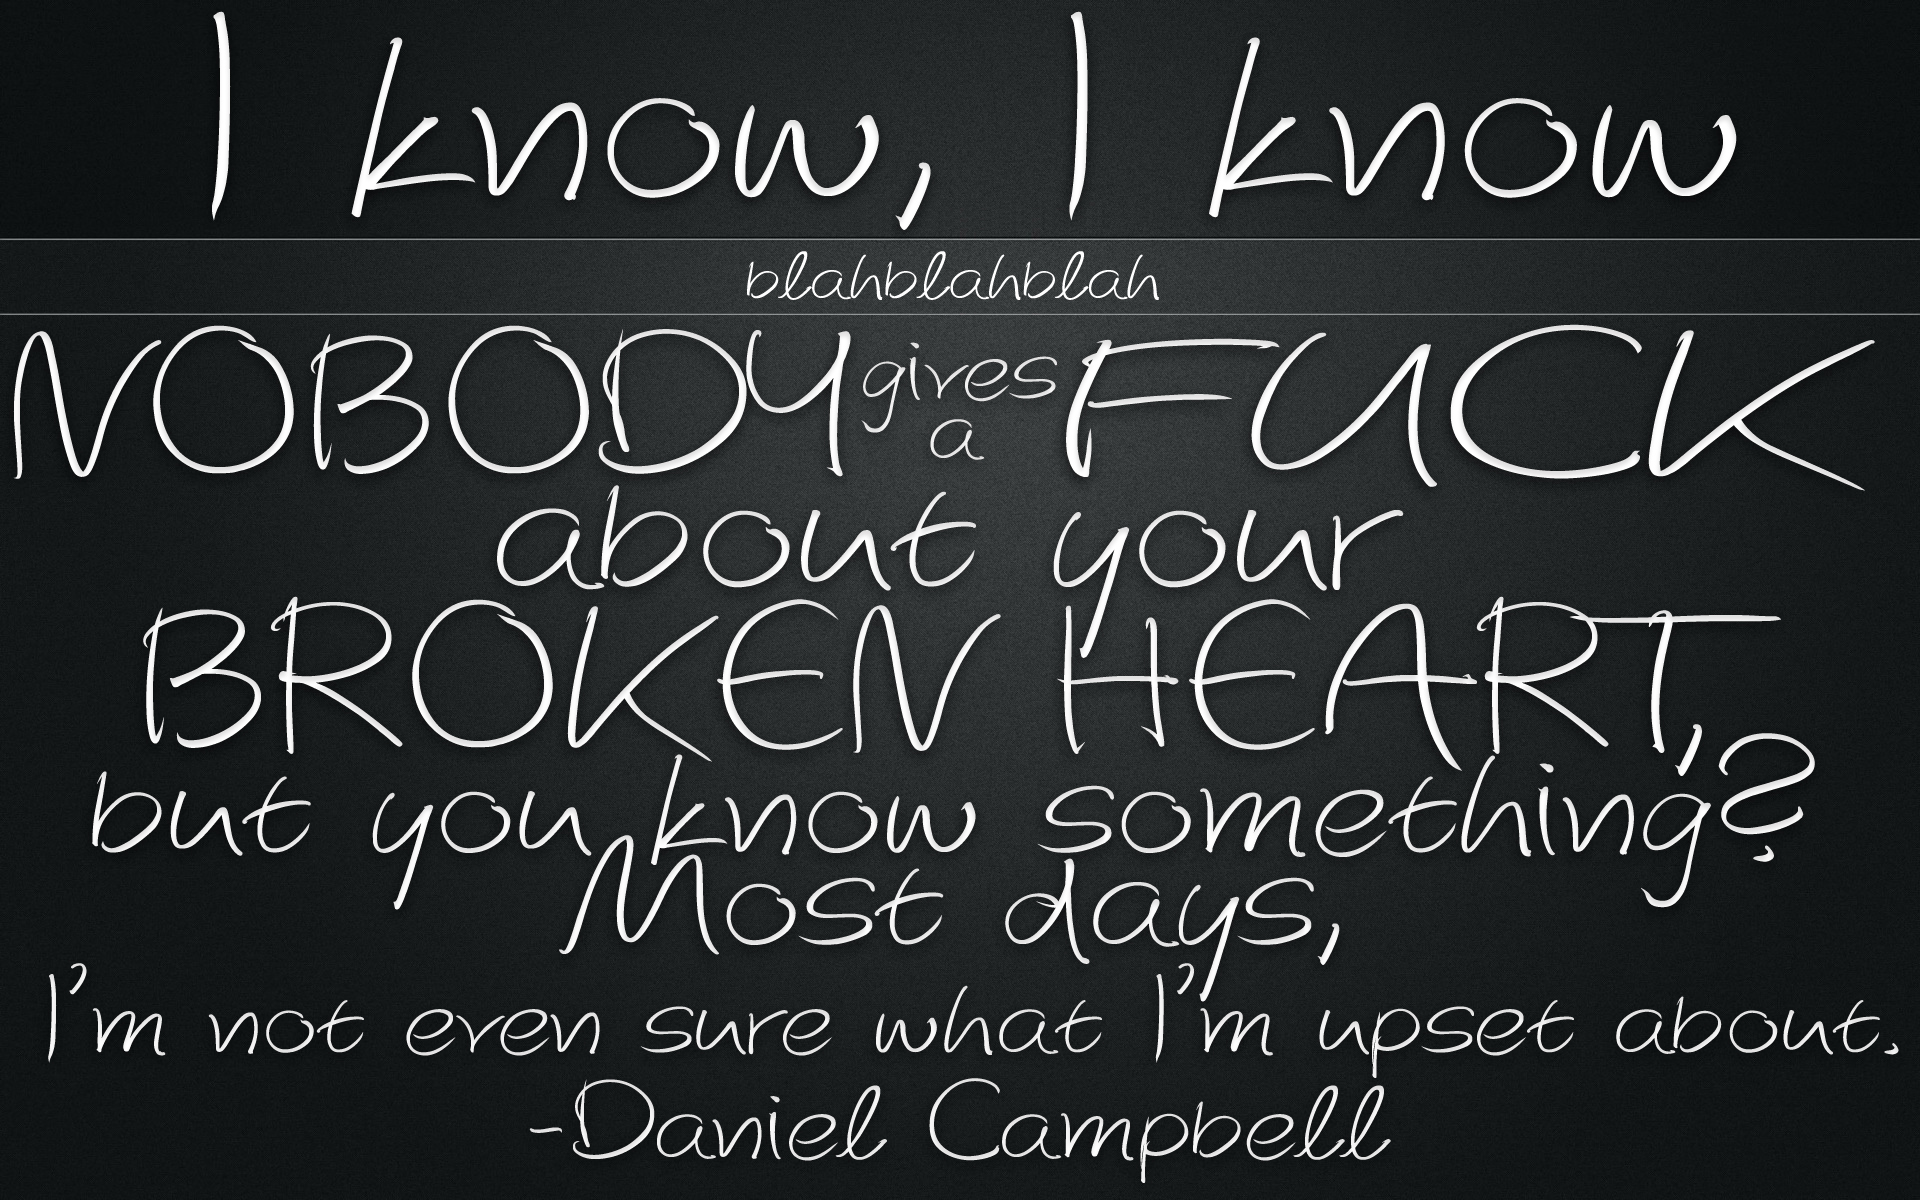 I know, I know
blahblahblah
NOBODY gives a FUCK
about your
BROKEN HEART,
but you know something?
Most days,
I'm not even sure what I'm upset about.
-Daniel Campbell